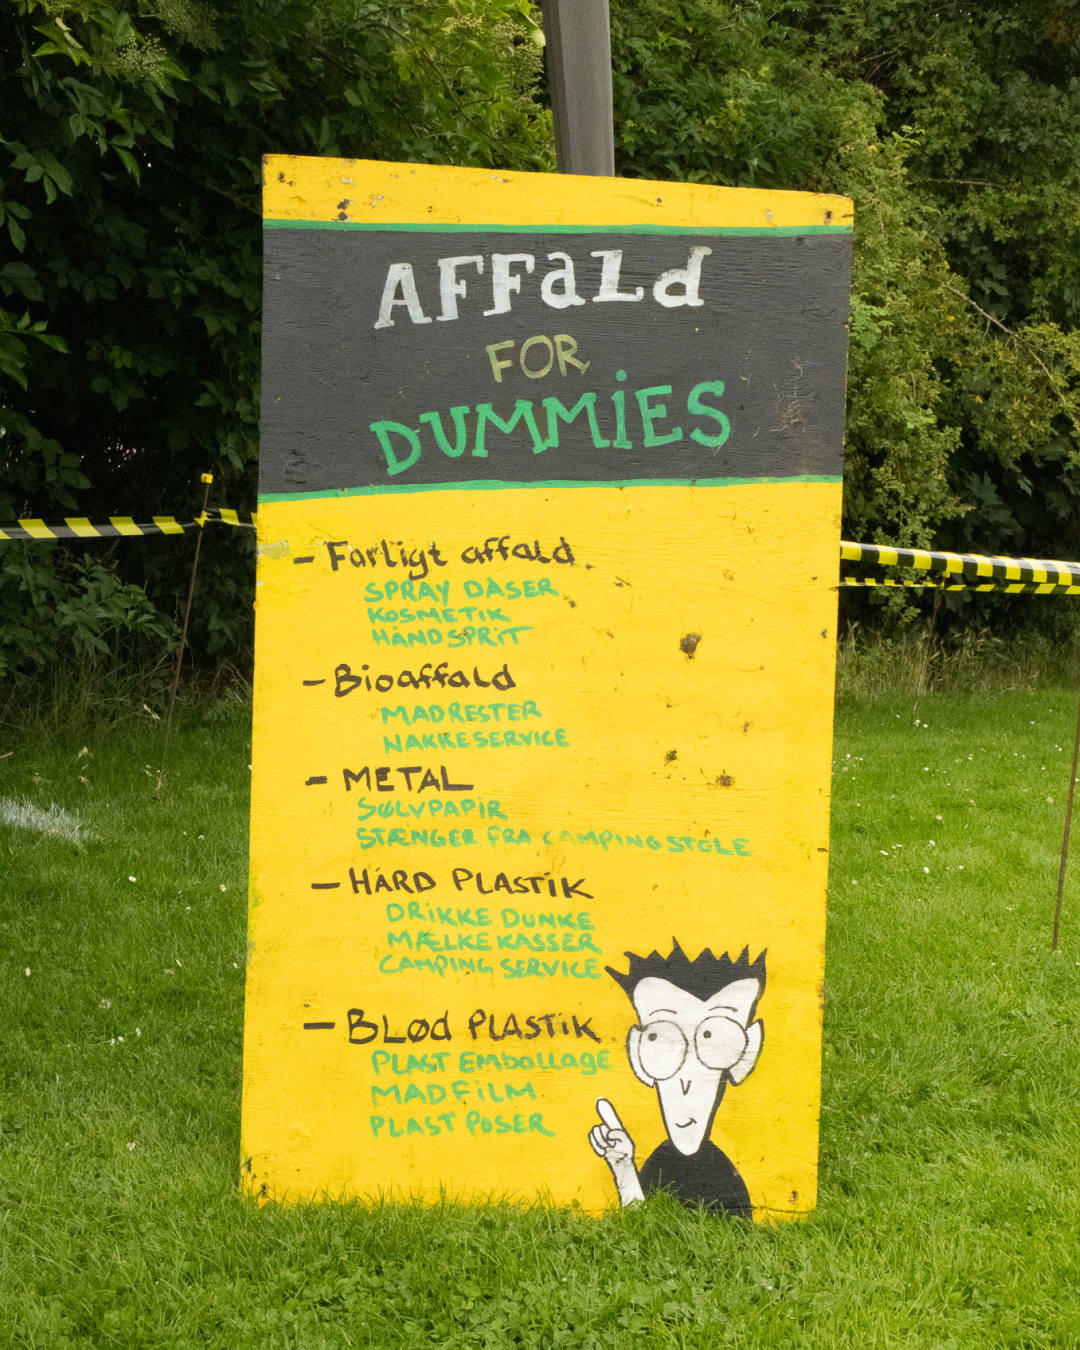 AFFaLd
FOR
DUMMiES
- Farligt affald.
SPRAY DÅSER
KOSMETIK
HÅNDSPRiT
- Bioaffald
MADRESTER
NAKKESERVICE
- METAL
SØLVPAPiR
STÆNGER FRA CAMPiNGSTOLE
- HÅRD PLASTiK
DRiKKE DUNKE
MÆLKEKASSER
CAMPiNG SERVICE
- BLØd PLASTiK
PLAST EMballage
MADFiLM
PLAST POSER